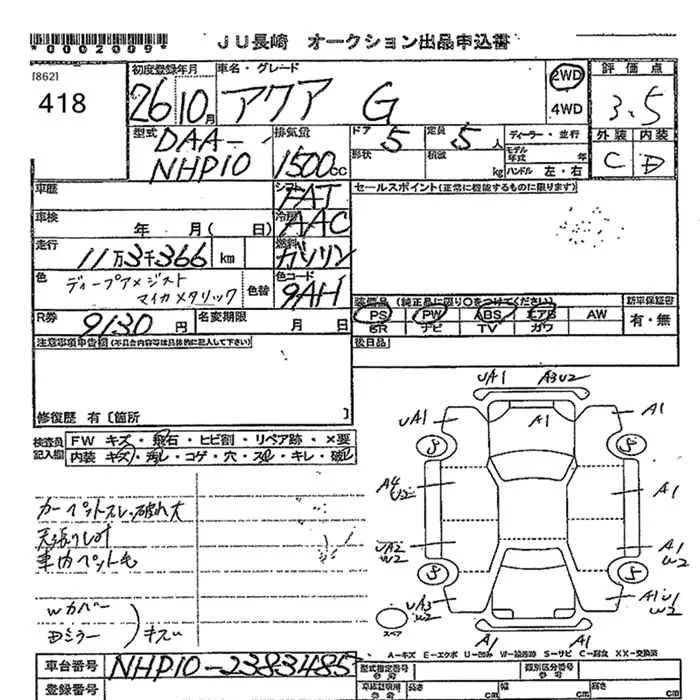 *0002009*
JU長崎 オークション出品申込書
[862]
418
初度登録年月
26 10月
車名・グレード
アクア G
2WD
4WD
評価点
3.5
外装 内装
C D
型式
DAA-
NHP10
排気量
1500cc
ドア 5
定員 5人
形状
積載 kg
ディーラー・並行
モデル年式 年
ハンドル 左・右
車歴
シフト
FAT
セールスポイント(正常に機能するものに限ります)
車検 年 月( 日)
冷房
AAC
走行 11万3千366 km
燃料
ガソリン
色 ディープアメジスト
マイカメタリック
色替
色コード
9AH
R券 9130円
名変期限 月 日
装備品(純正品に限り○をつけてください)
PS PW ABS エアB AW
SR ナビ TV カワ
新車保証書
有・無
注意事項申告欄(不具合内容等は具体的に記入して下さい)
後日品
修復歴 有〔箇所 〕
検査員記入欄
FW キズ・飛石・ヒビ割・リペア跡・×要
内装 キズ・汚レ・コゲ・穴・スレ・キレ・破レ
カーペットスレ、破れ大
天張りし汁
車内ペット毛
Wカバー
Dミラー
キズU
UA1 A3U2
UA1 A1 A1
A4
U2
A1
UA2
W2
A1
W2
UA3
W2
A1U1
W2
A1 A1
5 5
5 5
スペア
A-キズ E-エクボ U-凹み W-補修跡 S-サビ C-腐食 XX-交換済
車台番号 NHP10-2383485
登録番号
型式指定番号
参考
類別区分番号
参考
車庫証明用
参考
長さ cm
幅 cm
高さ cm